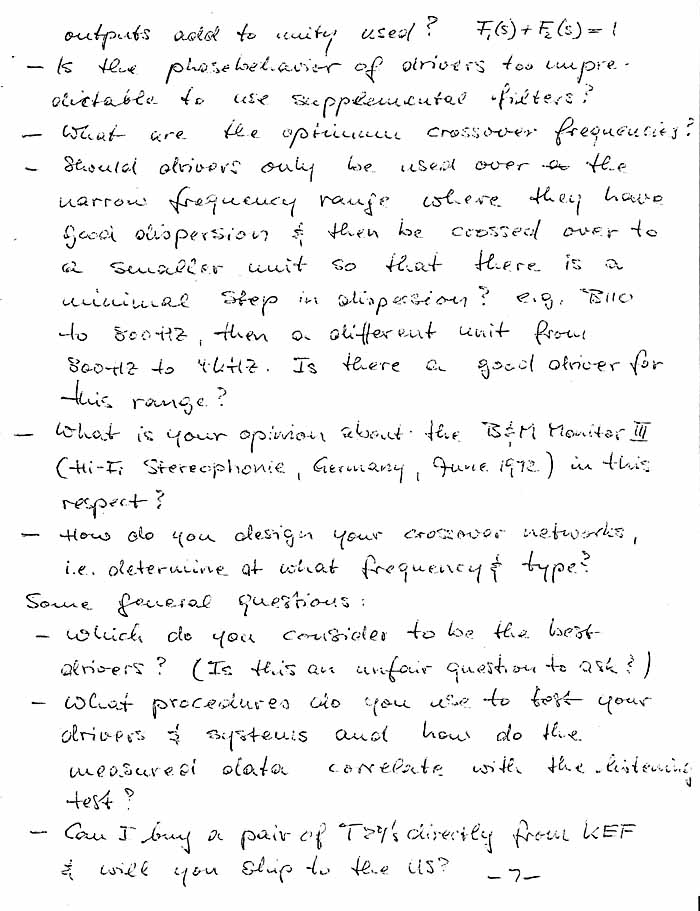 outputs add to unity used? F₁(s) + F₂(s) = 1
- Is the phase behavior of drivers too unpre-
dictable to use supplemental filters?
- What are the optimum crossover frequencies?
- Should drivers only be used over the
narrow frequency range where they have
good dispersion & then be crossed over to
a smaller unit so that there is a
minimal step in dispersion? e.g. B110
to 800HZ, then a different unit from
800HZ to 4kHZ. Is there a good driver for
this range?
- What is your opinion about the B&M Monitor III
(Hi-Fi Stereophonie, Germany, June 1972) in this
respect?
- How do you design your crossover networks,
i.e. determine at what frequency & type?
Some general questions:
- Which do you consider to be the best
drivers? (Is this an unfair question to ask?)
- What procedures do you use to test your
drivers & systems and how do the
measured data correlate with the listening
test?
- Can I buy a pair of T27's directly from KEF
& will you ship to the US? -7-